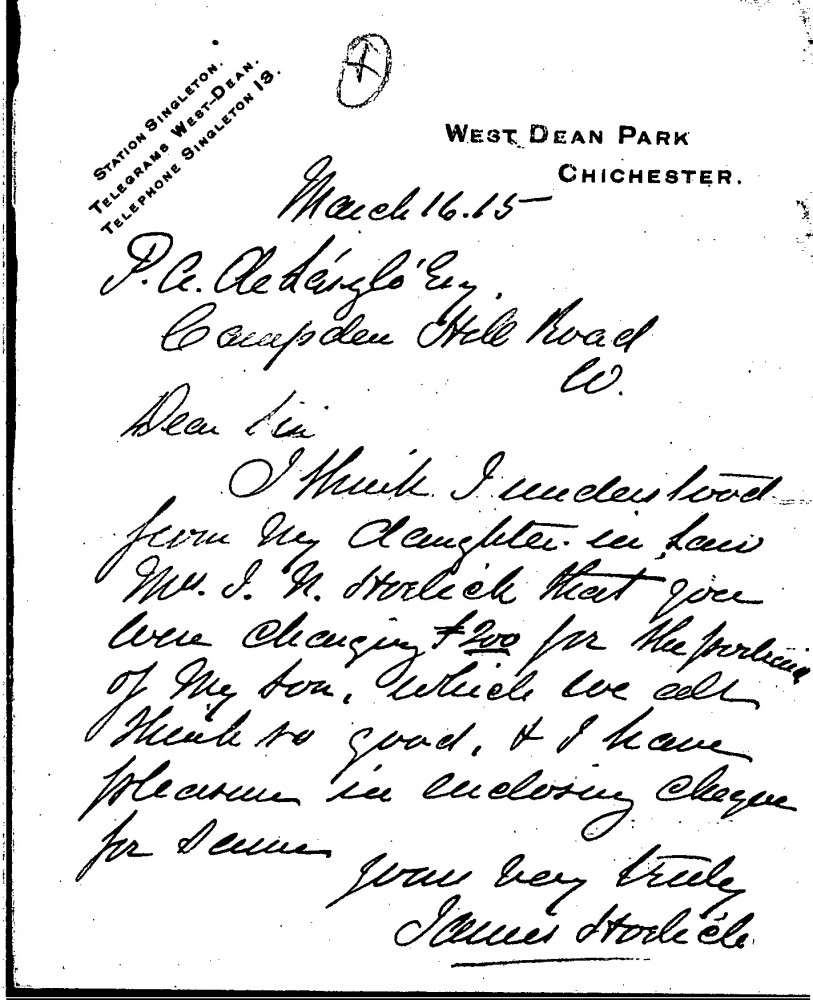 STATION SINGLETON.
TELEGRAMS WEST-DEAN.
TELEPHONE SINGLETON 13.
WEST DEAN PARK
CHICHESTER.
March 16. 15
P. A. de László Esq.
Campden Hill Road
W.
Dear Sir
I think I understood
from my daughter-in-law
Mrs. J. N. Horlick that you
were charging £200 for the portrait
of my son, which we all
think so good, & I have
pleasure in enclosing cheque
for same
yours very truly
James Horlick